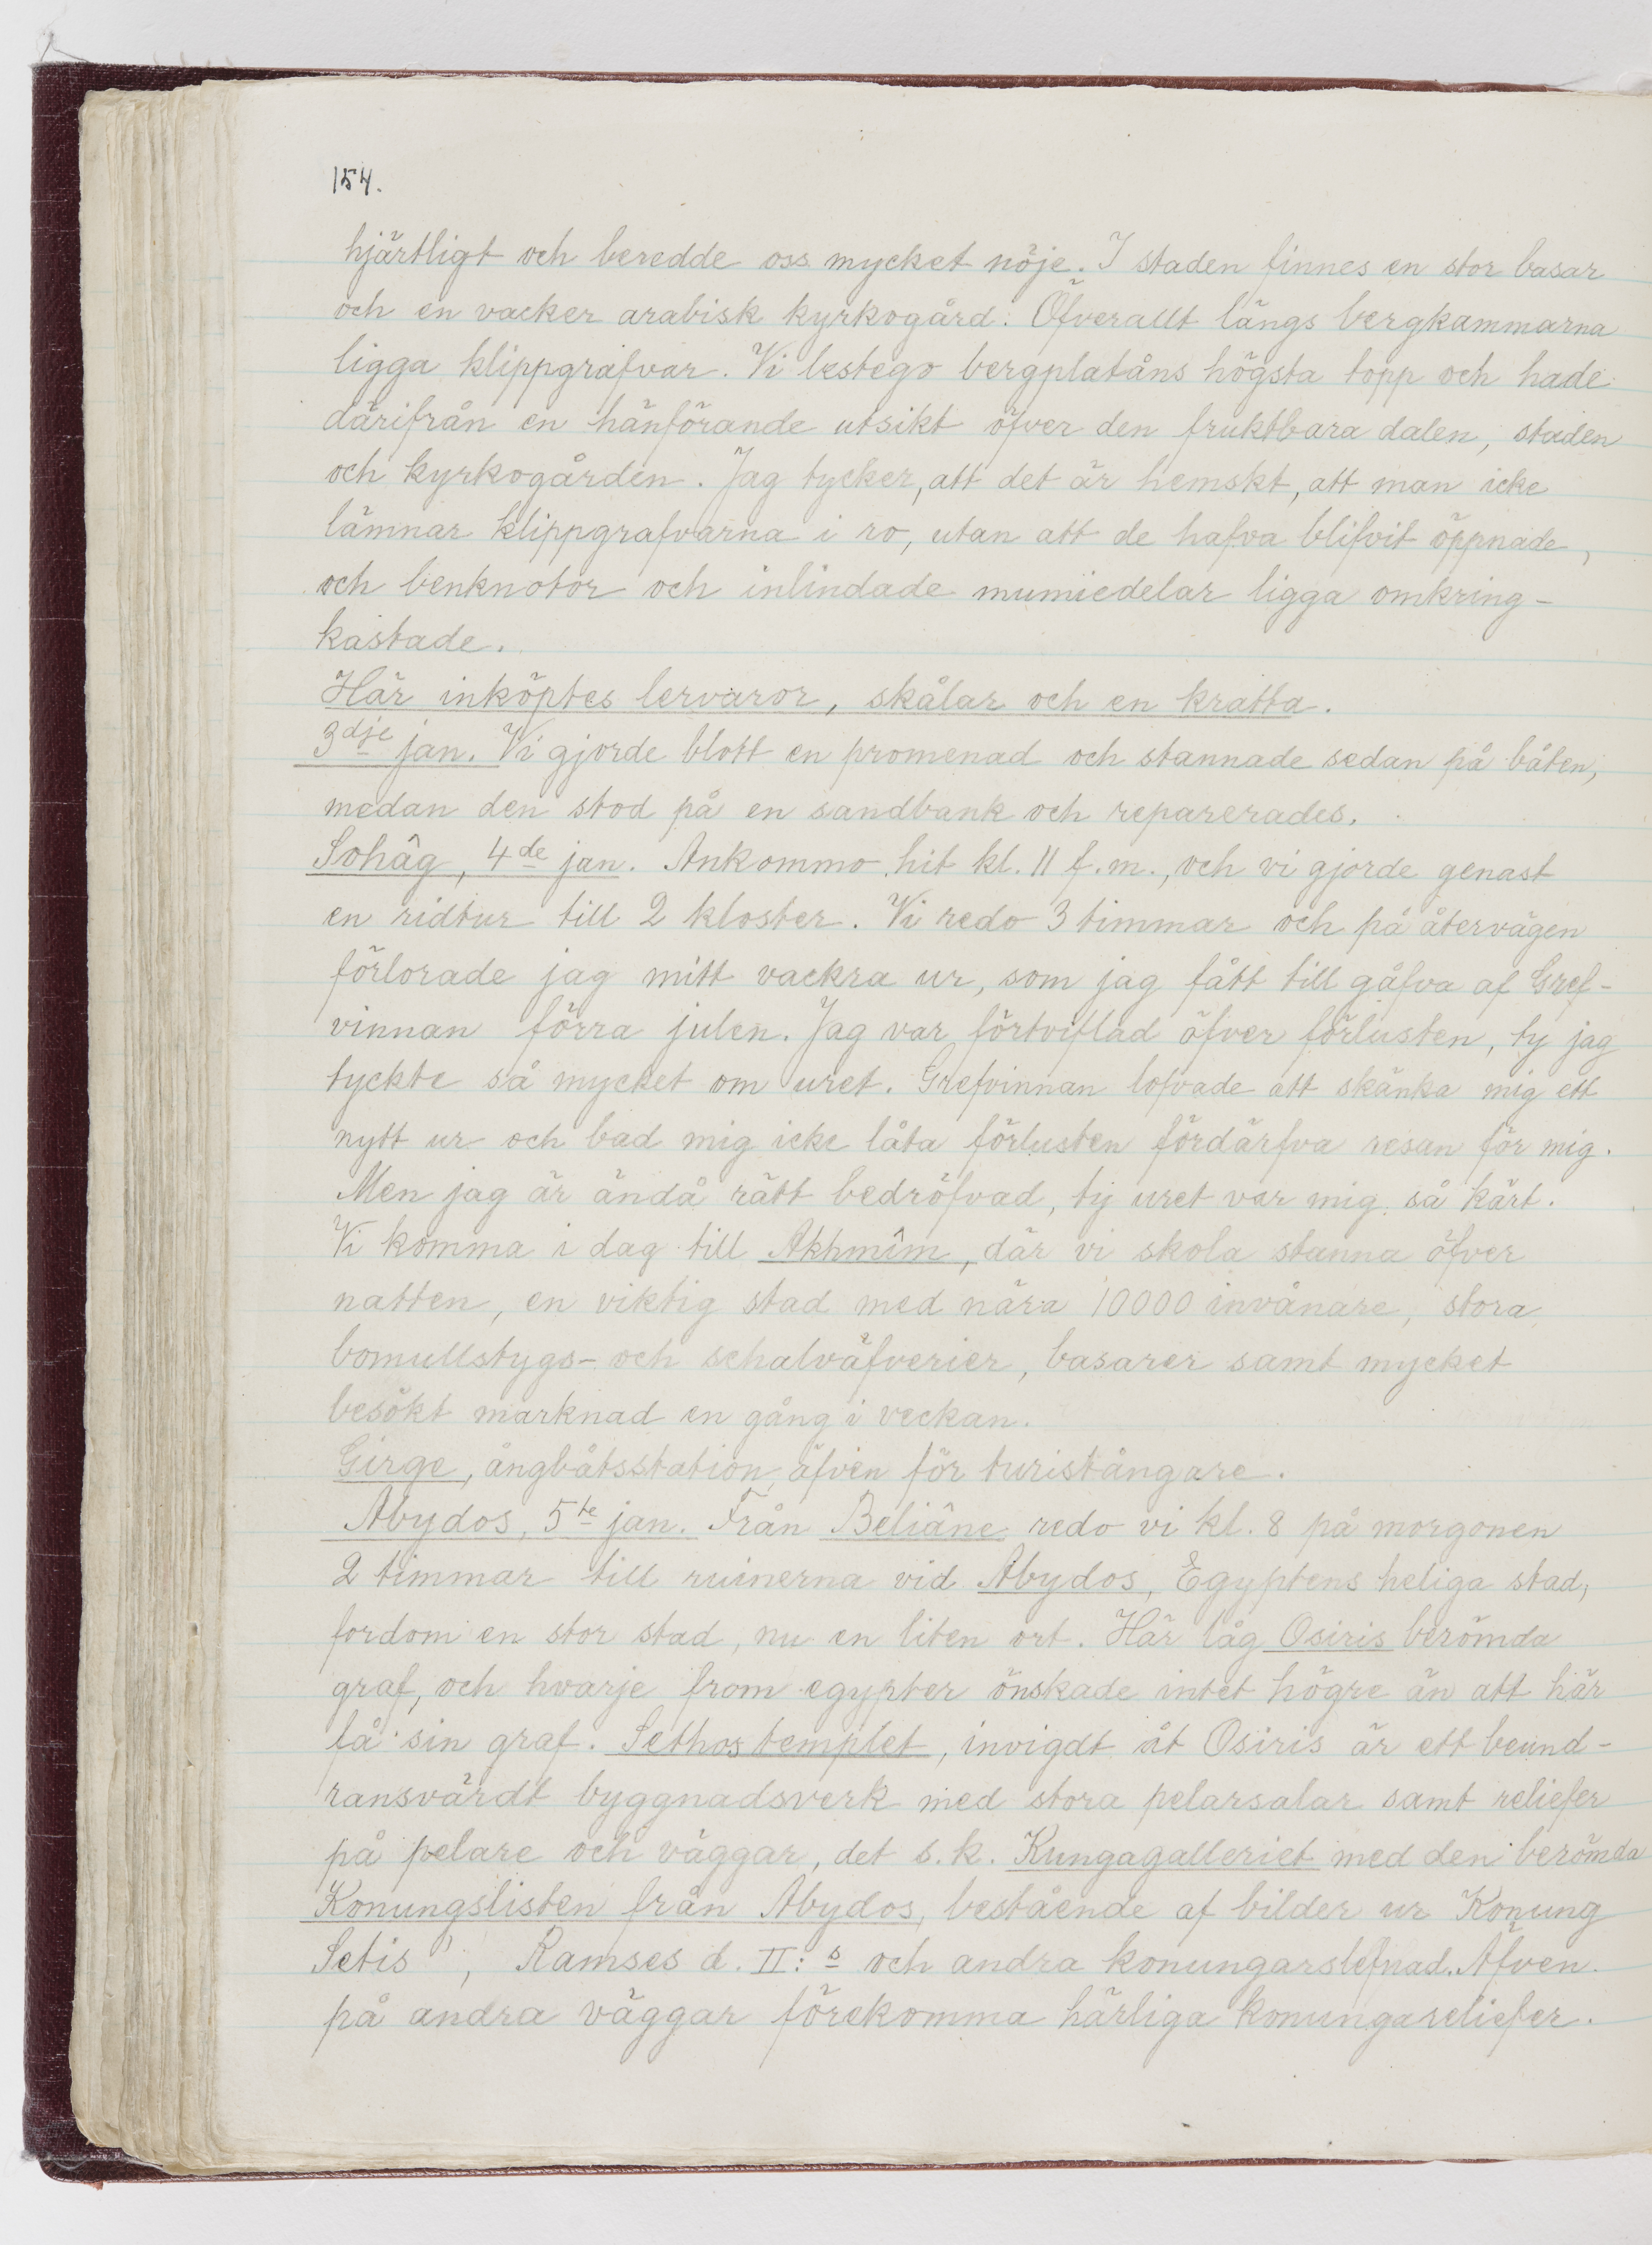 154.
hjärtligt och beredde oss mycket nöje. I staden finnes en stor basar
och en vacker arabisk kyrkogård. Öfverallt längs bergkammarna
ligga klippgrafvar. Vi bestego bergplatåns högsta topp och hade
därifrån en hänförande utsikt öfver den fruktbara dalen, staden
och kyrkogården. Jag tycker, att det är hemskt, att man icke
lämnar klippgrafvarna i ro, utan att de hafva blifvit öppnade,
och benknotor och inlindade mumiedelar ligga omkring-
kastade.
Här inköptes lervaror, skålar och en kratta.
3dje jan. Vi gjorde blott en promenad och stannade sedan på båten,
medan den stod på en sandbank och reparerades.
Sohâg, 4de jan. Ankommo hit kl. 11 f.m., och vi gjorde genast
en ridtur till 2 kloster. Vi redo 3 timmar och på återvägen
förlorade jag mitt vackra ur, som jag fått till gåfva af Gref-
vinnan förra julen. Jag var förtviflad öfver förlusten, ty jag
tyckte så mycket om uret. Grefvinnan lofvade att skänka mig ett
nytt ur och bad mig icke låta förlusten fördärfva resan för mig.
Men jag är ändå rätt bedröfvad, ty uret var mig så kärt.
Vi komma i dag till Akhmîm, där vi skola stanna öfver
natten, en viktig stad med nära 10000 invånare, stora
bomullstygs- och schalväfverier, basarer samt mycket
besökt marknad en gång i veckan.
Girge, ångbåtsstation, äfven för turistångare.
Abydos, 5te jan. Från Beliâne redo vi kl. 8 på morgonen
2 timmar till ruinerna vid Abydos, Egyptens heliga stad,
fordom en stor stad, nu en liten ort. Här låg Osiris berömda
graf, och hvarje from egypter önskade intet högre än att här
få sin graf. Sethostemplet, invigdt åt Osiris är ett beund-
ransvärdt byggnadsverk med stora pelarsalar samt reliefer
på pelare och väggar, det s.k. Kungagalleriet med den berömda
Konungslisten från Abydos, bestående af bilder ur Konung
Setis', Ramses d. II:s och andra konungarslefnad. Äfven
på andra väggar förekomma härliga konungareliefer.